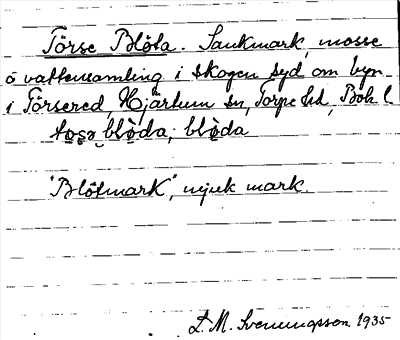 Törse Blöta. Sankmark, mosse
o vattensamling i skogen syd om byn
i Törsered, Hjärtum sn, Torpe hd, Boh l.
tosə blöda, blöda
"Blötmark", mjuk mark.
D. M. Svenungsson 1935